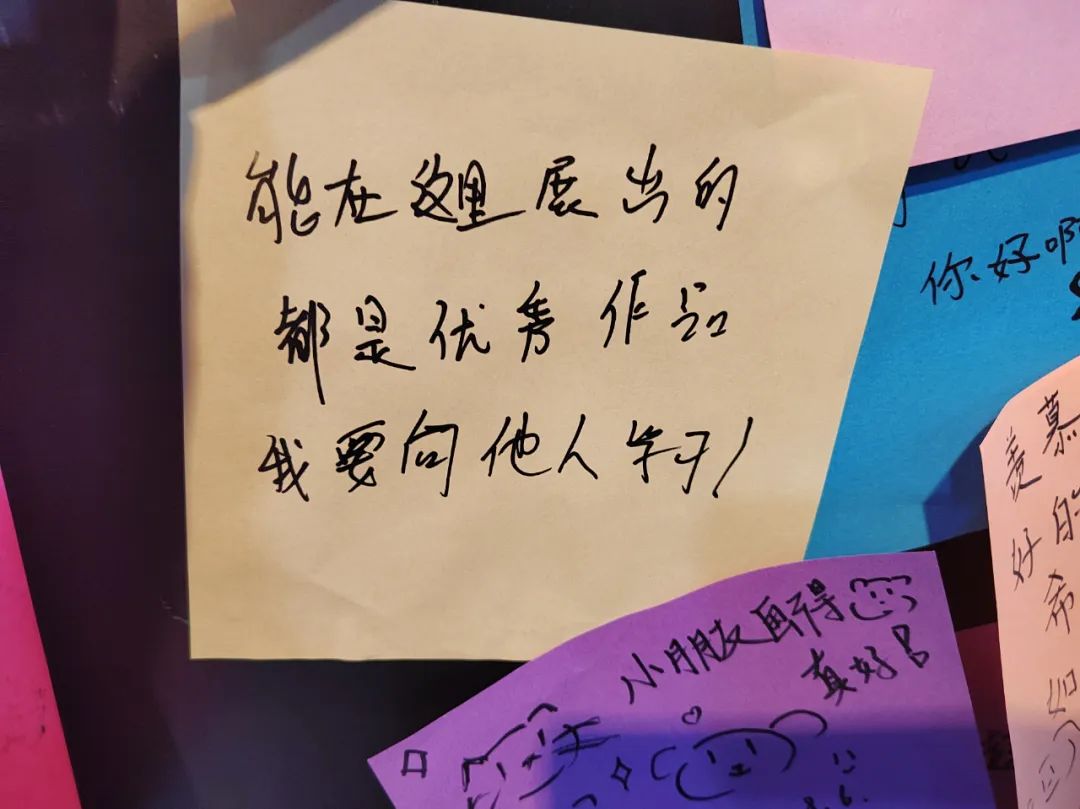 能在这里展出的
都是优秀作品
我要向他人学习!
你好啊
小朋友画得
真好!
羡慕
好
希
如
8.6.